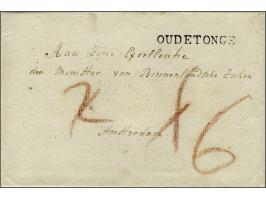 OUDETONGE
Aan Zijne Excellentie
den Minister van Binnenlandsche Zaken
te
Amsterdam
6